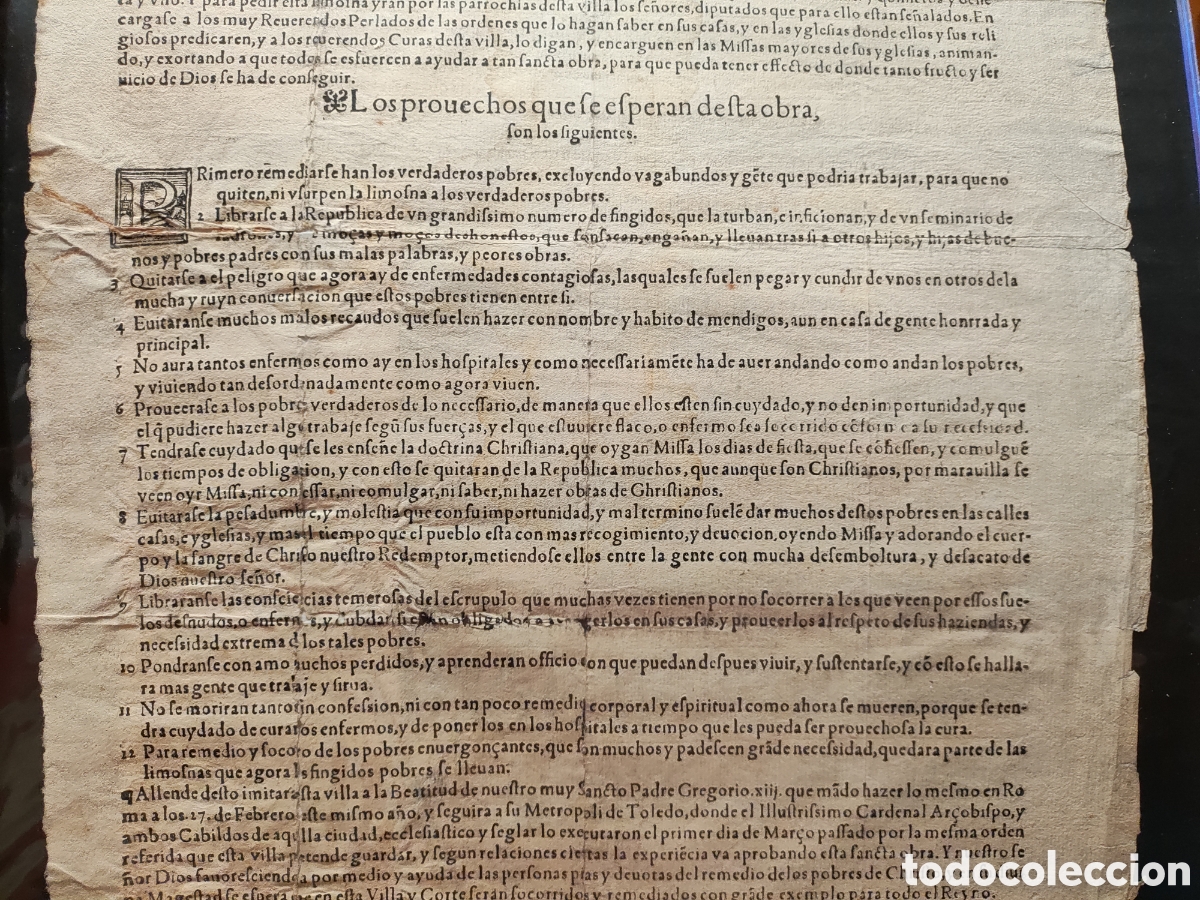 ta y vno. Y para pedir esta limosna yran por las parrochias desta villa los señores, diputados que para ello estan señalados. En
cargase a los muy Reuerẽdos Perlados de las ordenes que lo hagan saber en sus casas, y en las yglesias donde ellos y sus reli
giosos predicaren, y a los reuerendos Curas desta villa, lo digan, y encarguen en las Missas mayores de sus yglesias, animan-
do, y exortando a que todos se esfuercen a ayudar a tan sancta obra, para que pueda tener effecto de donde tanto fructo y ser
uicio de Dios se ha de conseguir.
Los prouechos que se esperan desta obra,
son los siguientes.
PRimero remẽdiarse han los verdaderos pobres, excluyendo vagabundos y gẽte que podria trabajar, para que no
quiten, ni vsurpen la limosna a los verdaderos pobres.
2 Librarse a la Republica de vn grandissimo numero de fingidos, que la turban, e inficionan, y de vn seminario de
ladrones, y moças y moços deshonestos, que sonsacan, engañan, y lleuan tras si a otros hijos, y hijas de bue-
nos y pobres padres con sus malas palabras, y peores obras.
3 Quitarse a el peligro que agora ay de enfermedades contagiosas, las quales se suelen pegar y cundir de vnos en otros de la
mucha y ruyn conuersacion que estos pobres tienen entre si.
4 Euitaranse muchos malos recaudos que suelen hazer con nombre y habito de mendigos, aun en casa de gente honrrada y
principal.
5 No aura tantos enfermos como ay en los hospitales y como necessariamẽte ha de auer andando como andan los pobres,
y viuiendo tan desordenadamente como agora viuen.
6 Proueerase a los pobres verdaderos de lo necessario, de manera que ellos esten sin cuydado, y no den importunidad, y que
el q̃ pudiere hazer algo trabaje segũ sus fuerças, y el que estuuiere flaco, o enfermo sea socorrido cõforme a su necesidad.
7 Tendrase cuydado que se les enseñe la doctrina Christiana, que oygan Missa los dias de fiesta, que se cõfiessen, y comulguẽ
los tiempos de obligation, y con esto se quitaran de la Republica muchos, que aunque son Christianos, por marauilla se
veen oyr Missa, ni confessar, ni comulgar, ni saber, ni hazer obras de Ghristianos.
8 Euitarase la pesadumbre, y molestia que con su importunidad, y mal termino suelẽ dar muchos destos pobres en las calles
casas, e yglesias, y mas el tiempo que el pueblo esta con mas recogimiento, y deuocion, oyendo Missa y adorando el cuer-
po y la sangre de Christo nuestro Redemptor, metiendose ellos entre la gente con mucha desemboltura, y desacato de
Dios nuestro señor.
9 Libraranse las consciencias temerosas del escrupulo que muchas vezes tienen por no socorrer a los que veen por essos sue-
los desnudos, o enfermos, y dubdar, si estan obligados a acogerlos en sus casas, y proueerlos al respeto de sus haziendas, y
necessidad extrema de los tales pobres.
10 Pondranse con amo muchos perdidos, y aprenderan officio con que puedan despues viuir, y sustentarse, y cõ esto se halla-
ra mas gente que trabaje y sirua.
11 No se moriran tantos sin confession, ni con tan poco remedio corporal y espiritual como ahora se mueren, porque se ten-
dra cuydado de curar los enfermos, y de poner los en los hospitales a tiempo que les pueda ser prouechosa la cura.
12 Para remedio y socorro de los pobres enuergonçantes, que son muchos y padescen grãde necessidad, quedara parte de las
limosnas que agora los fingidos pobres se lleuan.
¶ Allende desto imitara esta villa a la Beatitud de nuestro muy Sancto Padre Gregorio.xiij. que mãdo hazer lo mesmo en Ro
ma a los 27. de Febrero este mismo año, y seguira a su Metropoli de Toledo, donde el Illustrissimo Cardenal Arçobispo, y
ambos Cabildos de aquella ciudad, ecclesiastico y seglar lo executaron el primer dia de Março passado por la mesma orden
referida que esta villa pretende guardar, y segun relaciones ciertas la experiẽcia va aprobando esta sancta obra. Y nuestro se
ñor Dios fauoresciendola por medio y ayuda de las personas pias y deuotas del remedio de los pobres de
Magestad se espera que en esta Villa y Corte seran socorridos y remediados con grãde exemplo para todo el Reyno.
todocoleccion